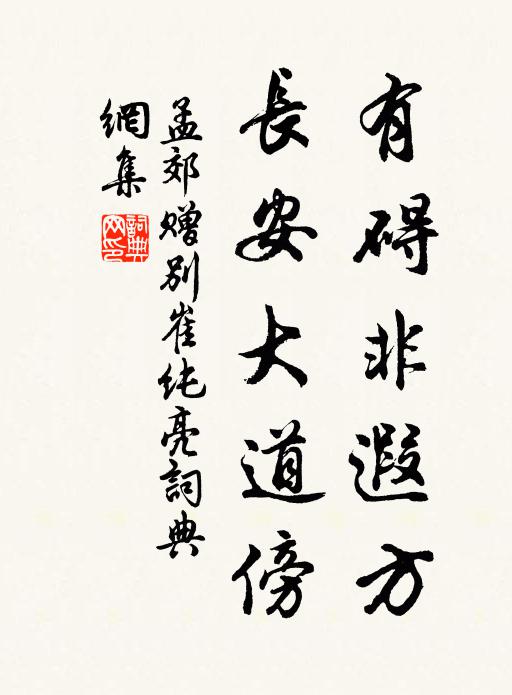 有碍非遐方
長安大道傍
孟郊赠别崔纯亮詞典
網集
詞典網印